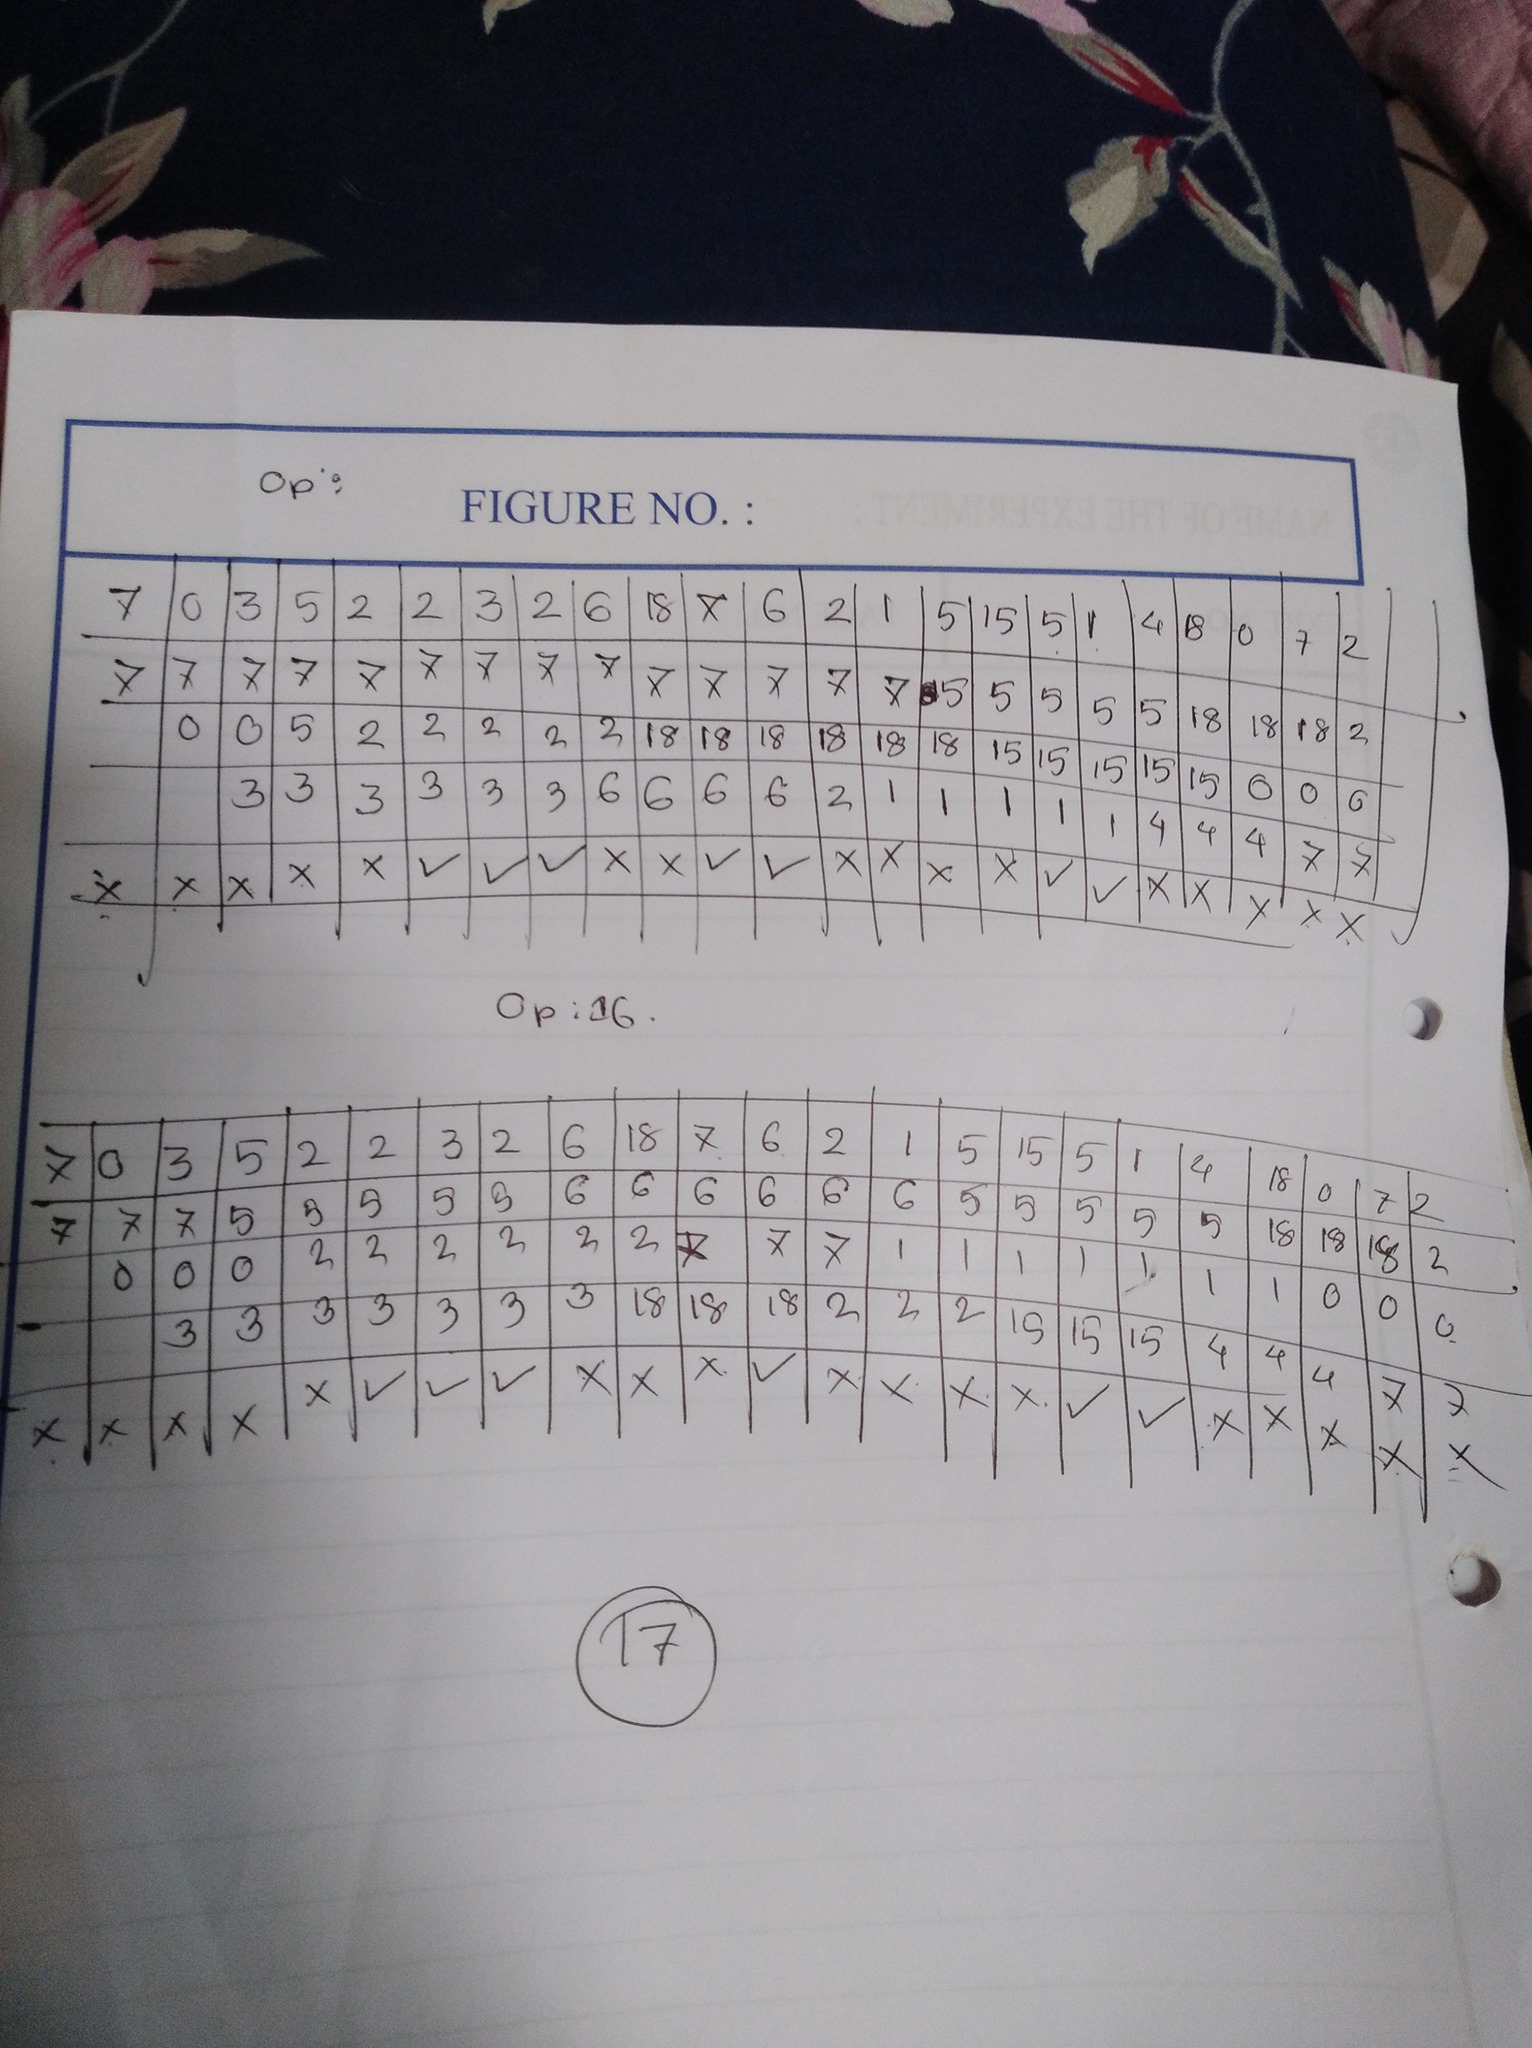 Op:
FIGURE NO. :
7 0 3 5 2 2 3 2 6 18 7 6 2 1 5 15 5 1 4 18 0 7 2
7 7 7 7 7 7 7 7 7 7 7 7 7 7 5 5 5 5 18 18 18 2
0 0 5 2 2 2 2 2 18 18 18 18 18 18 15 15 15 15 15 0 0 0
3 3 3 3 3 3 6 6 6 6 2 1 1 1 1 1 4 4 4 7 7
x x x x x ✓ ✓ ✓ x x ✓ ✓ x x x x ✓ ✓ x x x x x
Op: 16.
7 0 3 5 2 2 3 2 6 18 7 6 2 1 5 15 5 1 4 18 0 7 2
7 7 7 5 5 5 5 5 6 6 6 6 6 6 5 5 5 5 5 18 18 18 2
0 0 0 2 2 2 2 2 2 7 7 7 1 1 1 1 1 1 1 0 0 0
3 3 3 3 3 3 3 18 18 18 2 2 2 15 15 15 4 4 4 7 7
x x x x x ✓ ✓ ✓ x x x ✓ x x x x ✓ ✓ x x x x x
17